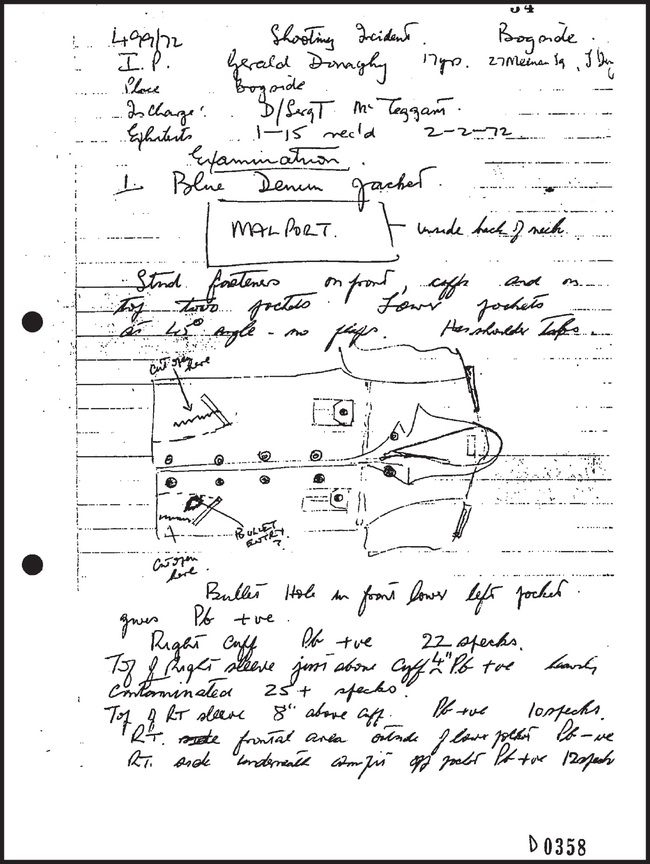 34
499/72 Shooting Incident. Bogside.
I.P. Gerald Donaghy 17yrs. 27 Meenan Sq, L'Derry
Place Bogside
In Charge: D/Sergt McTeggart.
Exhibits 1-15 rec'd 2-2-72
Examination.
1. Blue Denim Jacket.
MALPORT. inside back of neck.
Stud fasteners on front, cuffs and on
top two pockets. Lower pockets
at 45° angle - no flaps. Has shoulder Tabs.
Cut open here
BULLET ENTRY?
Cut open here.
Bullet Hole in front lower left pocket
gives Pb +ve.
Right Cuff Pb +ve 22 specks.
Top of Right sleeve just above cuff 4" Pb +ve heavily
contaminated 25+ specks.
Top of RT sleeve 8" above cuff. Pb +ve 10 specks.
RT. side frontal area outside of lower pocket Pb -ve
RT. side underneath armpit of jacket Pb +ve 12 specks
D0358